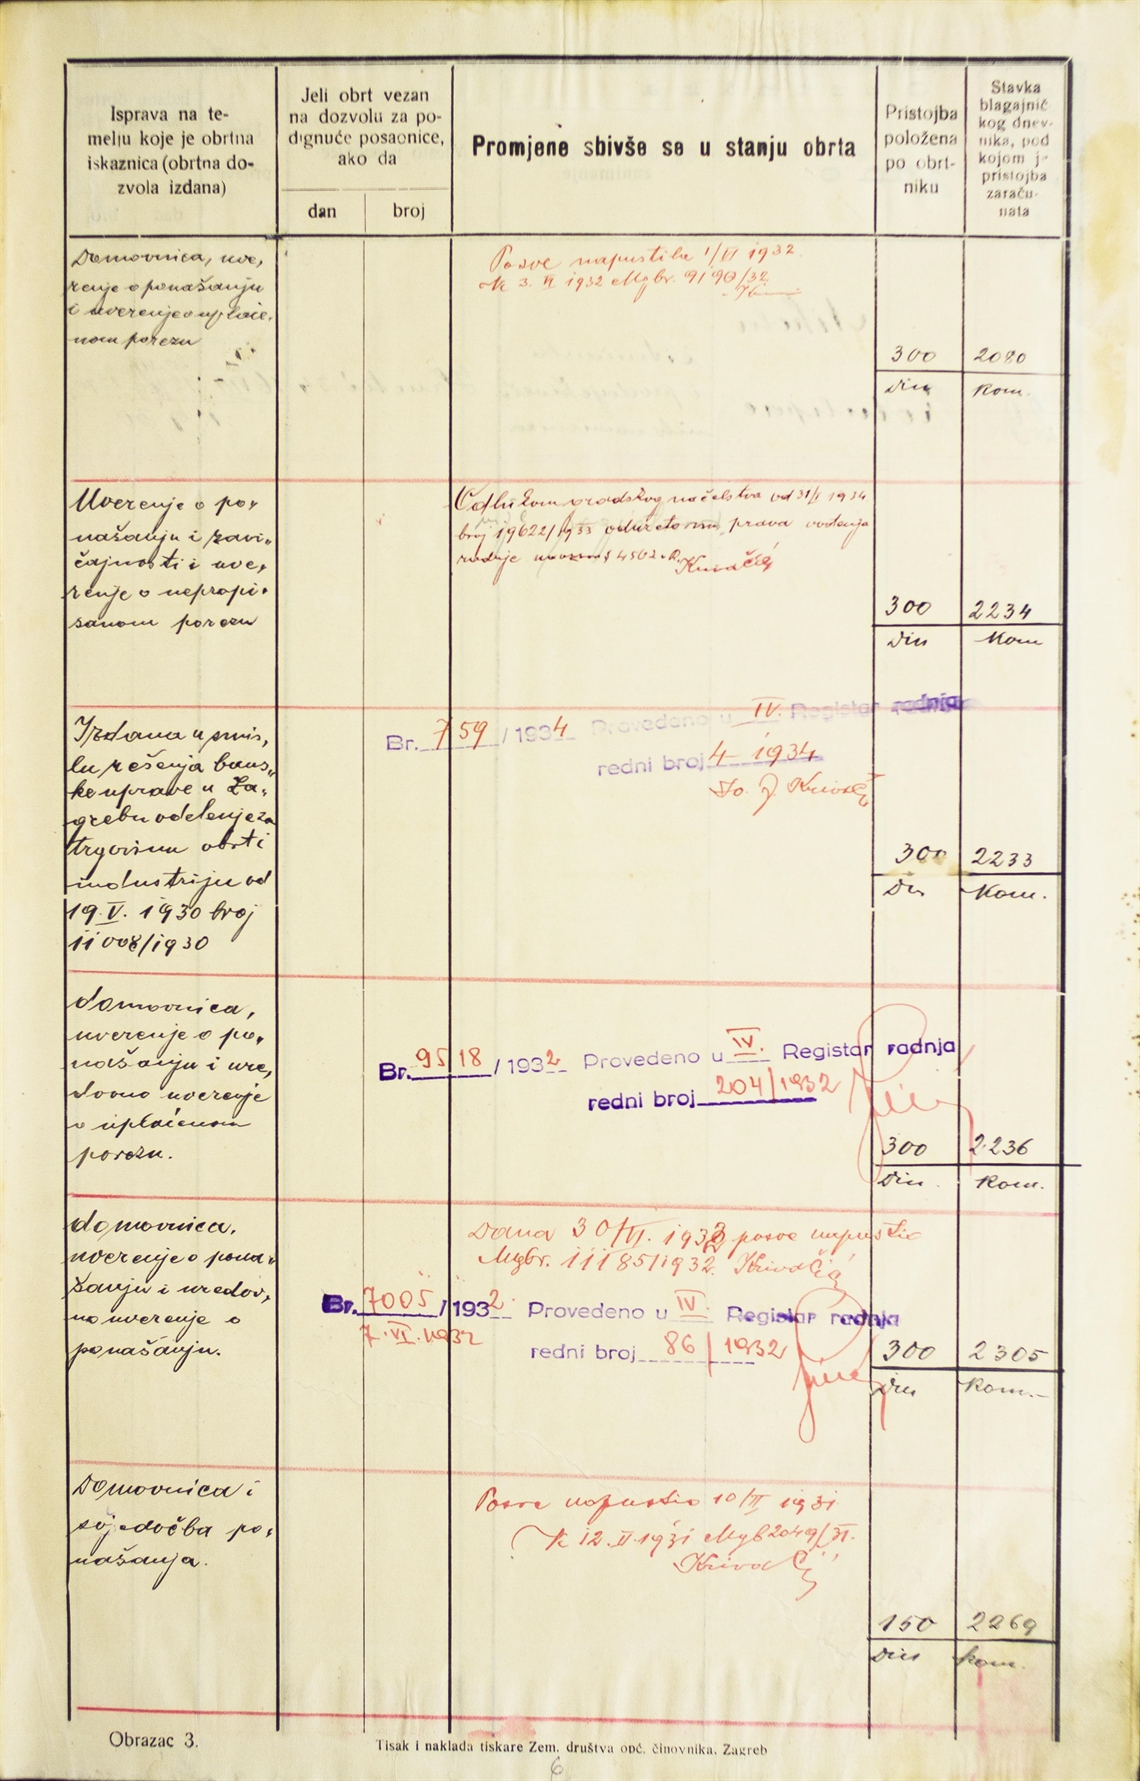 Isprava na te-
melju koje je obrtna
iskaznica (obrtna do-
zvola izdana)
Jeli obrt vezan
na dozvolu za po-
dignuće posaonice,
ako da
dan
broj
Promjene sbivše se u stanju obrta
Pristojba
položena
po obrt-
niku
Stavka
blagajnič
kog dnev-
nika, pod
kojom j-
pristojba
zaraču-
nata
Domovnica, uve,
renje o ponašanju
i uverenje o uplaće,
nom porezu
Posve napustila 1/VI 1932.
K 3. VI 1932 Mgbr. 9190/32
300
2080
Din
Kom.
Uverenje o po,
našanju i zavi,
čajnosti i uve,
renje o nepropi,
sanom porezu
Odlukom gradskog načelstva od 31/I 1934
broj 19622/1933 prava vođenja
radnje
Krivačić
300
2234
Din
Kom
Izdana u smis,
lu rešenja bans,
ke uprave u Za,
grebu odelenje za
trgovinu obrt i
industriju od
19. V. 1930 broj
11008/1930
Br. 759/1934 Provedeno u IV. Registar radnja
redni broj 4 1934
300
2233
Din
Kom.
domovnica,
uverenje o po,
našanju i ure,
dovno uverenje
o uplaćenom
porezu.
Br. 9518/1932 Provedeno u IV. Registar radnja
redni broj 204/1932
300
2236
Din.
Kom.
domovnica,
uverenje o pona,
šanju i uredov,
no uverenje o
ponašanju.
Dana 30/VI. 1932 posve napustio
Mgbr. 11185/1932. Krivačić
Br. 7005/1932. Provedeno u IV. Registar radnja
7. VI. 1932
redni broj 86/1932
300
2305
Din
Kom.-
Domovnica i
svjedočba po,
našanja.
Posve napustio 10/II 1931
K 12. II. 1931 Mgb 2049/31.
Krivačić
150
2269
Din
Kom.
Obrazac 3.
Tisak i naklada tiskare Zem. društva opć. činovnika, Zagreb
6